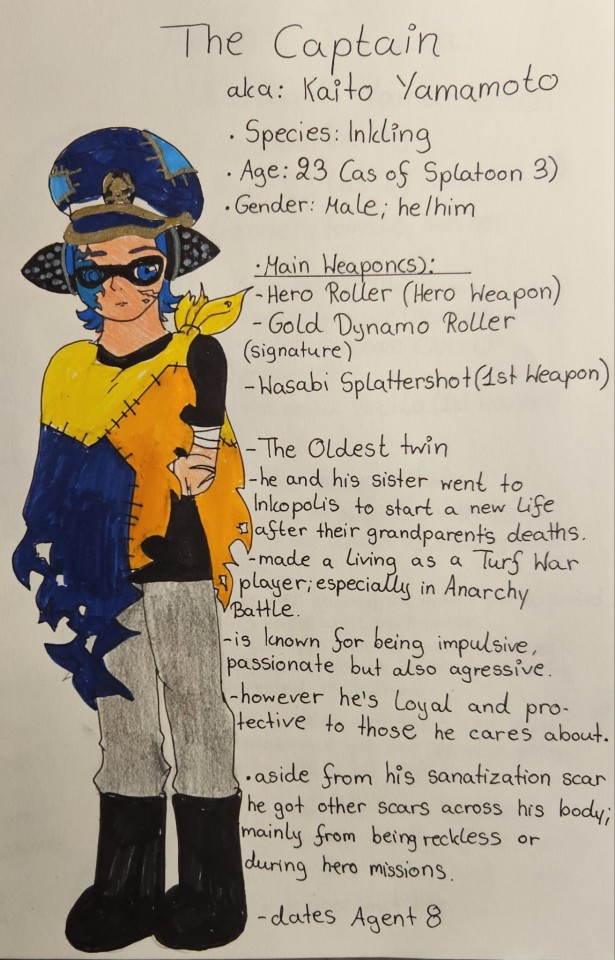 The Captain
aka: Kaito Yamamoto
• Species: Inkling
• Age: 23 (as of Splatoon 3)
• Gender: Male; he/him
• Main Weapon(s):
- Hero Roller (Hero Weapon)
- Gold Dynamo Roller
(signature)
- Wasabi Splattershot (1st Weapon)
- The Oldest twin
- he and his sister went to
Inkopolis to start a new life
after their grandparent's deaths.
- made a living as a Turf War
player; especially in Anarchy
Battle.
- is known for being impulsive,
passionate but also agressive.
- however he's loyal and pro-
tective to those he cares about.
• aside from his sanatization scar
he got other scars across his body;
mainly from being reckless or
during hero missions.
- dates Agent 8